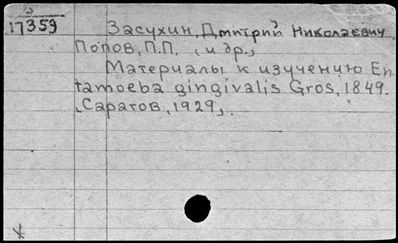 З
17359
Засухин, Дмитрий Николаевич.
Попов, П.П. (и др.)
Материалы к изучению En
tamoeba gingivalis Gros, 1849.
(Саратов, 1929).